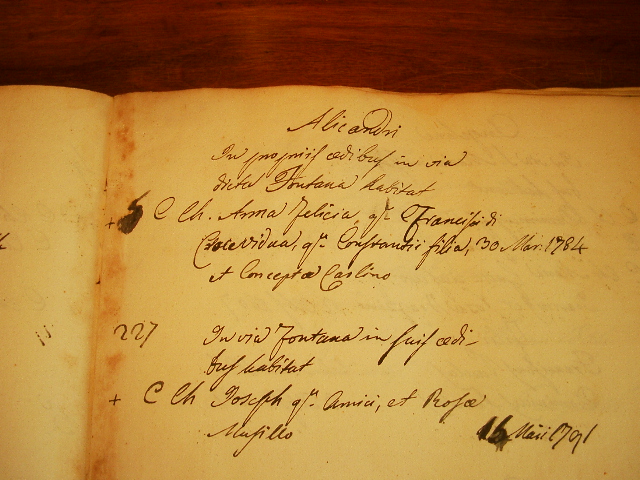 Alicandri
In propriis ædibus in via
dicta Fontana habitat
+ 5 C Ch. Anna Felicia, qm Francisci di
Croce Vidua, qm Constantii filia, 30 Mar. 1784
et Conceptæ Carlino
227 In via Fontana in suis ædi-
bus habitat
+ C Ch Joseph qm Amici, et Rosæ
Musillo 16 Maii 1791